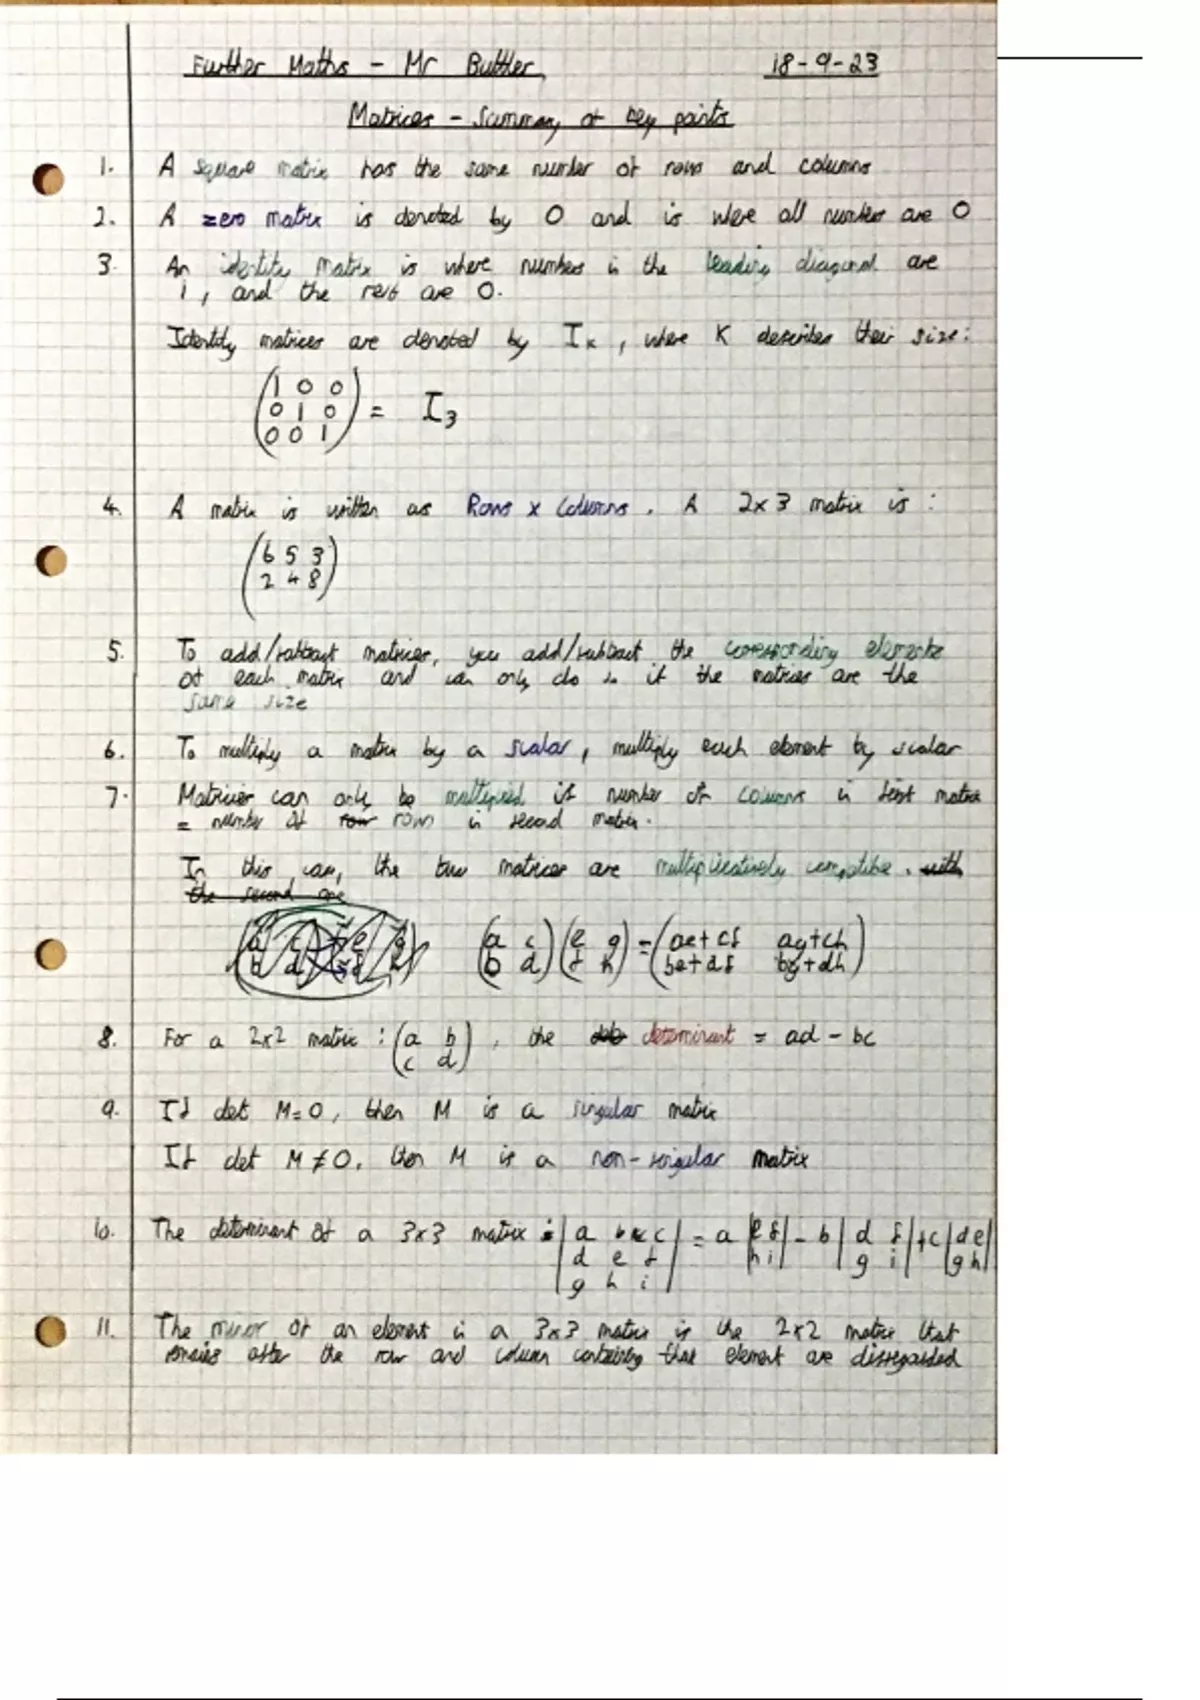 Further Maths - Mr Buttler, 18-9-23
Matrices - Summary of key points
1. A square matrix has the same number of rows and columns
2. A zero matrix is denoted by 0 and is where all numbers are 0
3. An identity matrix is where numbers in the leading diagonal are
1, and the rest are 0.
Identity matrices are denoted by I_K, where K describes their size:
(1 0 0
0 1 0
0 0 1) = I_3
4. A matrix is written as Rows x Columns. A 2x3 matrix is:
(6 5 3
2 4 8)
5. To add/subtract matrices, you add/subtract the corresponding elements
of each matrix and can only do so if the matrices are the
same size
6. To multiply a matrix by a scalar, multiply each element by scalar
7. Matricies can only be multiplied if number of columns in first matrix
= number of row rows in second matrix.
In this case, the two matrices are multiplicatively compatible. with
the second one
(a c
b d)(e g
f h) = (ae+cf ag+ch
be+df bg+dh)
8. For a 2x2 matrix: (a b
c d), the determinant = ad - bc
9. If det M=0, then M is a singular matrix
If det M≠0, then M is a non-singular matrix
10. The determinant of a 3x3 matrix: |a b c
d e f
g h i| = a|e f
h i| - b|d f
g i| + c|d e
g h|
11. The minor of an element in a 3x3 matrix is the 2x2 matrix that
remains after the row and column containing that element are disregarded